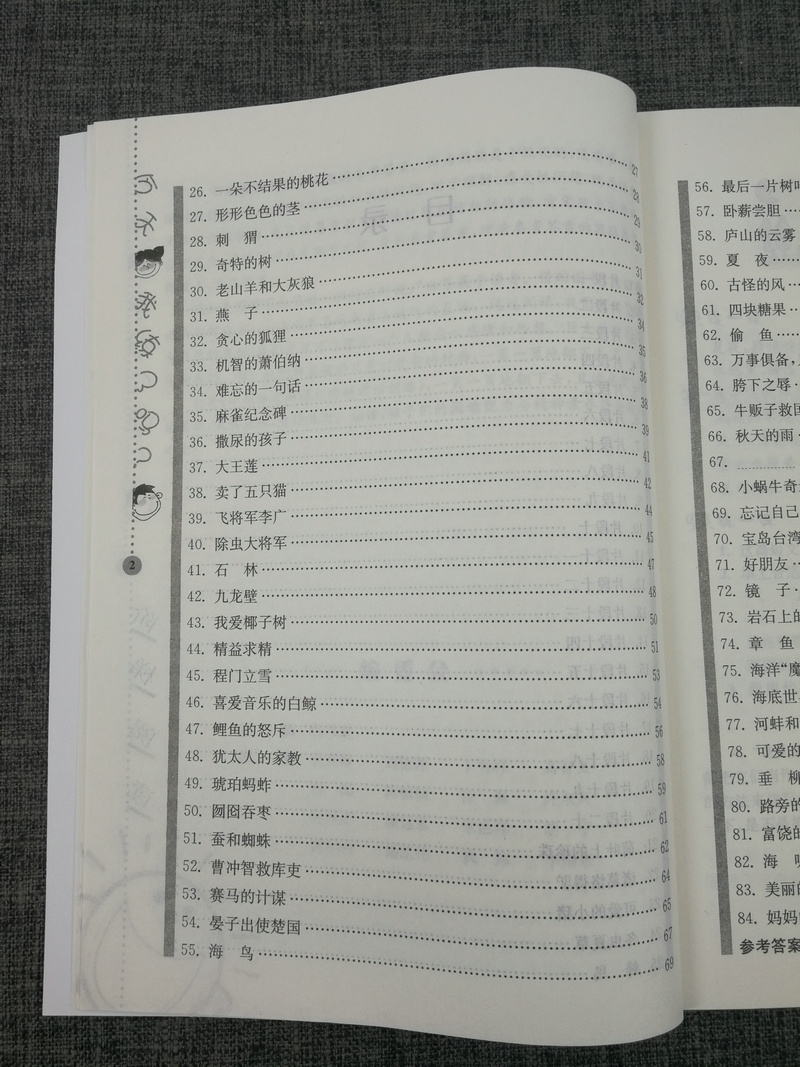 26. 一朵不结果的桃花 …… 27
27. 形形色色的茎 …… 28
28. 刺 猬 …… 29
29. 奇特的树 …… 30
30. 老山羊和大灰狼 …… 31
31. 燕 子 …… 32
32. 贪心的狐狸 …… 34
33. 机智的萧伯纳 …… 35
34. 难忘的一句话 …… 36
35. 麻雀纪念碑 …… 38
36. 撒尿的孩子 …… 39
37. 大王莲 …… 41
38. 卖了五只猫 …… 42
39. 飞将军李广 …… 44
40. 除虫大将军 …… 45
41. 石 林 …… 47
42. 九龙壁 …… 48
43. 我爱椰子树 …… 50
44. 精益求精 …… 51
45. 程门立雪 …… 53
46. 喜爱音乐的白鲸 …… 54
47. 鲤鱼的怒斥 …… 56
48. 犹太人的家教 …… 58
49. 琥珀蚂蚱 …… 59
50. 囫囵吞枣 …… 61
51. 蚕和蜘蛛 …… 62
52. 曹冲智救库吏 …… 64
53. 赛马的计谋 …… 65
54. 晏子出使楚国 …… 67
55. 海 鸟 …… 69
2
56. 最后一片树
57. 卧薪尝胆 ……
58. 庐山的云雾
59. 夏 夜 ……
60. 古怪的风 ……
61. 四块糖果 ……
62. 偷 鱼 ……
63. 万事俱备，
64. 胯下之辱 ……
65. 牛贩子救国
66. 秋天的雨 ……
67. ……
68. 小蜗牛奇
69. 忘记自己
70. 宝岛台湾
71. 好朋友 ……
72. 镜 子 ……
73. 岩石上的
74. 章 鱼
75. 海洋“魔
76. 海底世
77. 河蚌和
78. 可爱的
79. 垂 柳
80. 路旁的
81. 富饶的
82. 海
83. 美丽的
84. 妈妈
参考答案